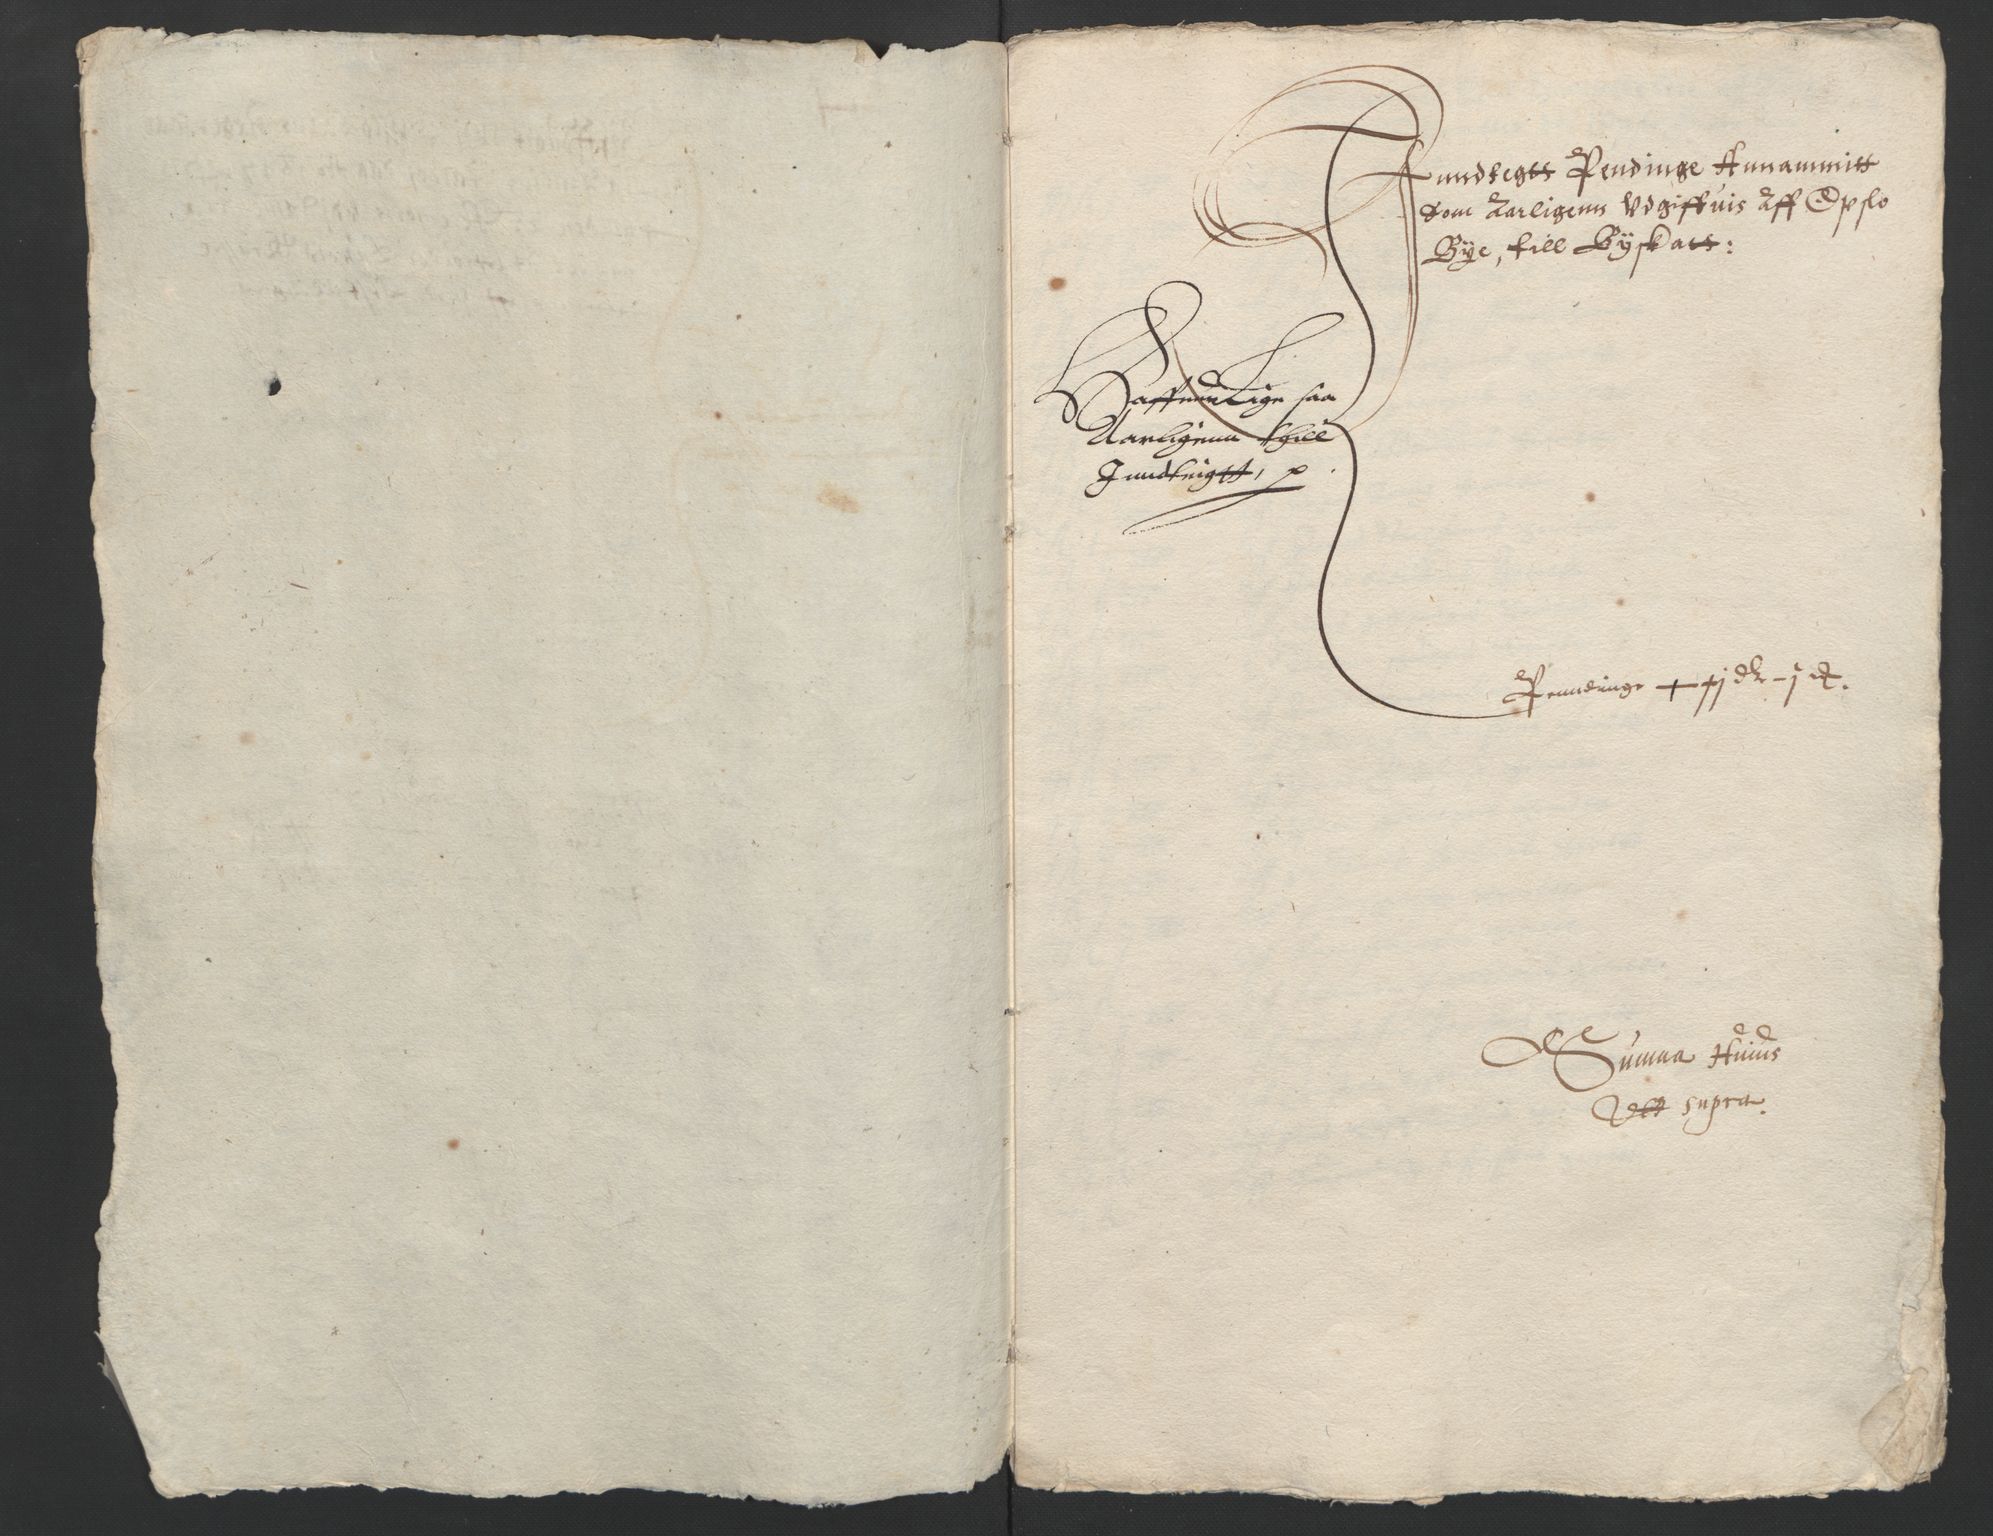 Jnndtegtt Pendinge Annammitt
som Aarligenn Vdgiffuis Aff Opslo
Bÿe, till Bÿskatt:
Haffuer Lige saa
Aarligenn thill
Jnndteigtt, p.
Penndinge xxvj dlr – j ort.
Summa Huius
Vtt supra.